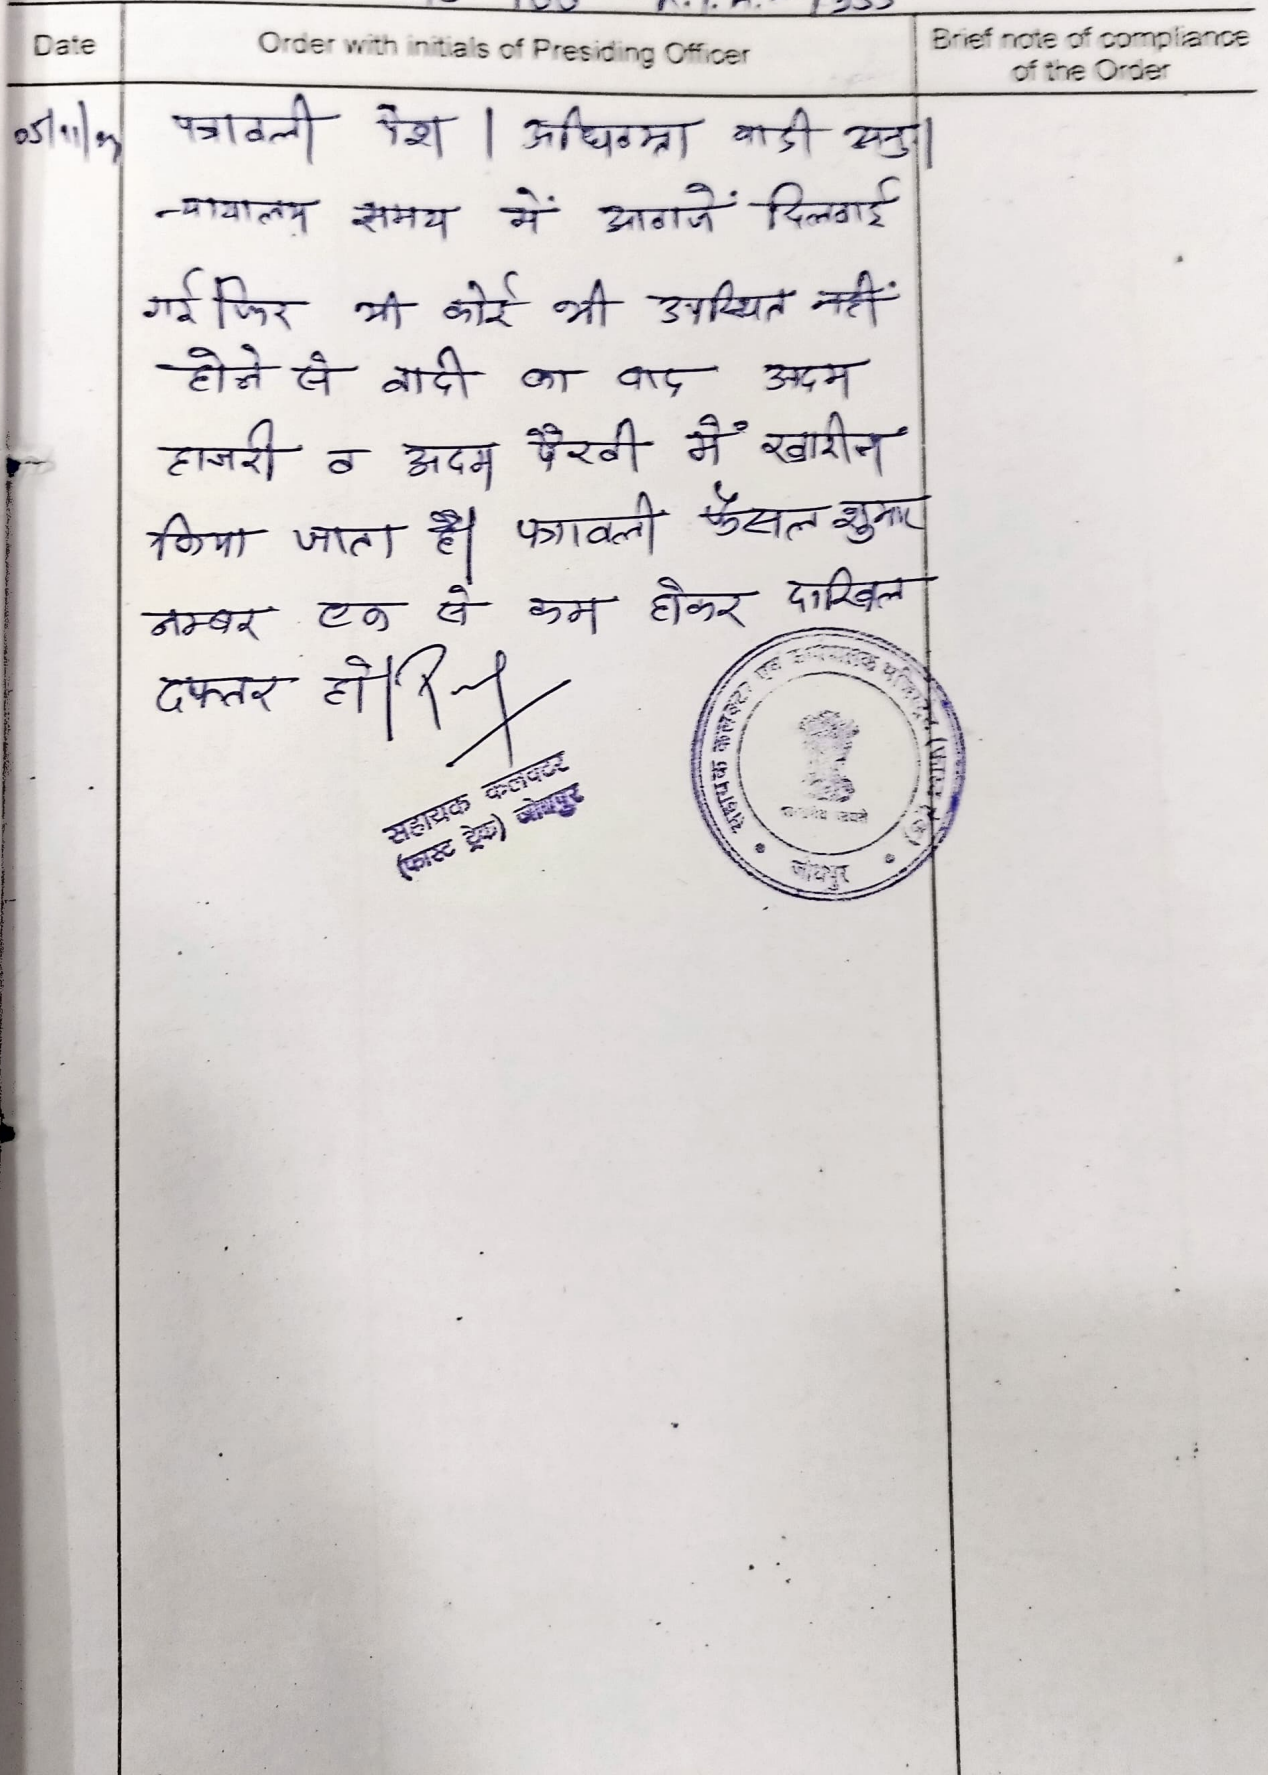 Date
Order with initials of Presiding Officer
Brief note of compliance
of the Order
पत्रावली पेश। अधिवक्ता वादी अनु।
न्यायालय समय में आवाजें दिलवाई
गई फिर भी कोई भी उपस्थित नहीं
होने से वादी का वाद अदम
हाजरी व अदम पैरवी में खारीज
किया जाता है। पत्रावली फैसल शुमार
नम्बर एक से कम होकर दाखिल
दफ्तर हो।
सहायक कलक्टर
(फास्ट ट्रेक) जोधपुर
सहायक कलक्टर एवं कार्यपालक मजिस्ट्रेट (फास्ट ट्रेक)
सत्यमेव जयते
जोधपुर